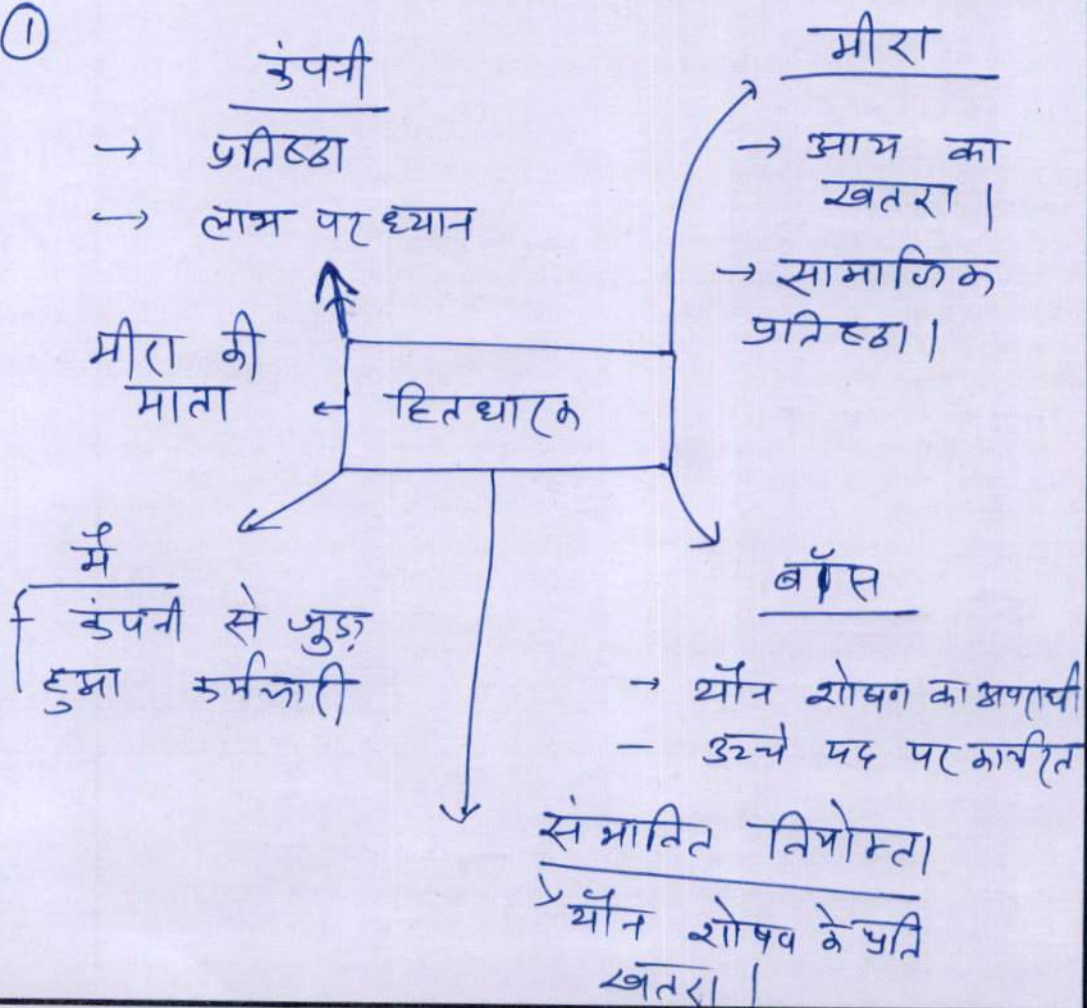 ①
कंपनी
→ प्रतिष्ठा
→ लाभ पर ध्यान
मीरा
→ आय का
खतरा।
→ सामाजिक
प्रतिष्ठा।
मीरा की
माता
हितधारक
मैं
कंपनी से जुड़ा
हुआ कर्मचारी
बॉस
→ यौन शोषण का अपराधी
– उच्चे पद पर कार्यरत
संभावित नियोक्ता
यौन शोषण के प्रति
खतरा।